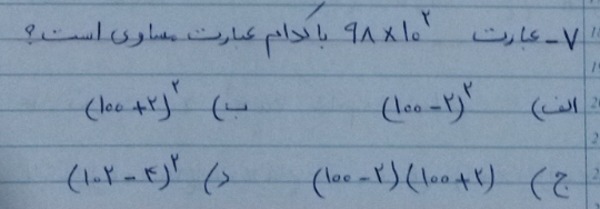 ۷- عبارت ۹۸×۱۰^۲ با کدام عبارت مساوی است؟
الف) (۱۰۰-۲)^۲ ب) (۱۰۰+۲)^۲
ج) (۱۰۰-۲)(۱۰۰+۲) د) (۱۰۲-۴)^۲